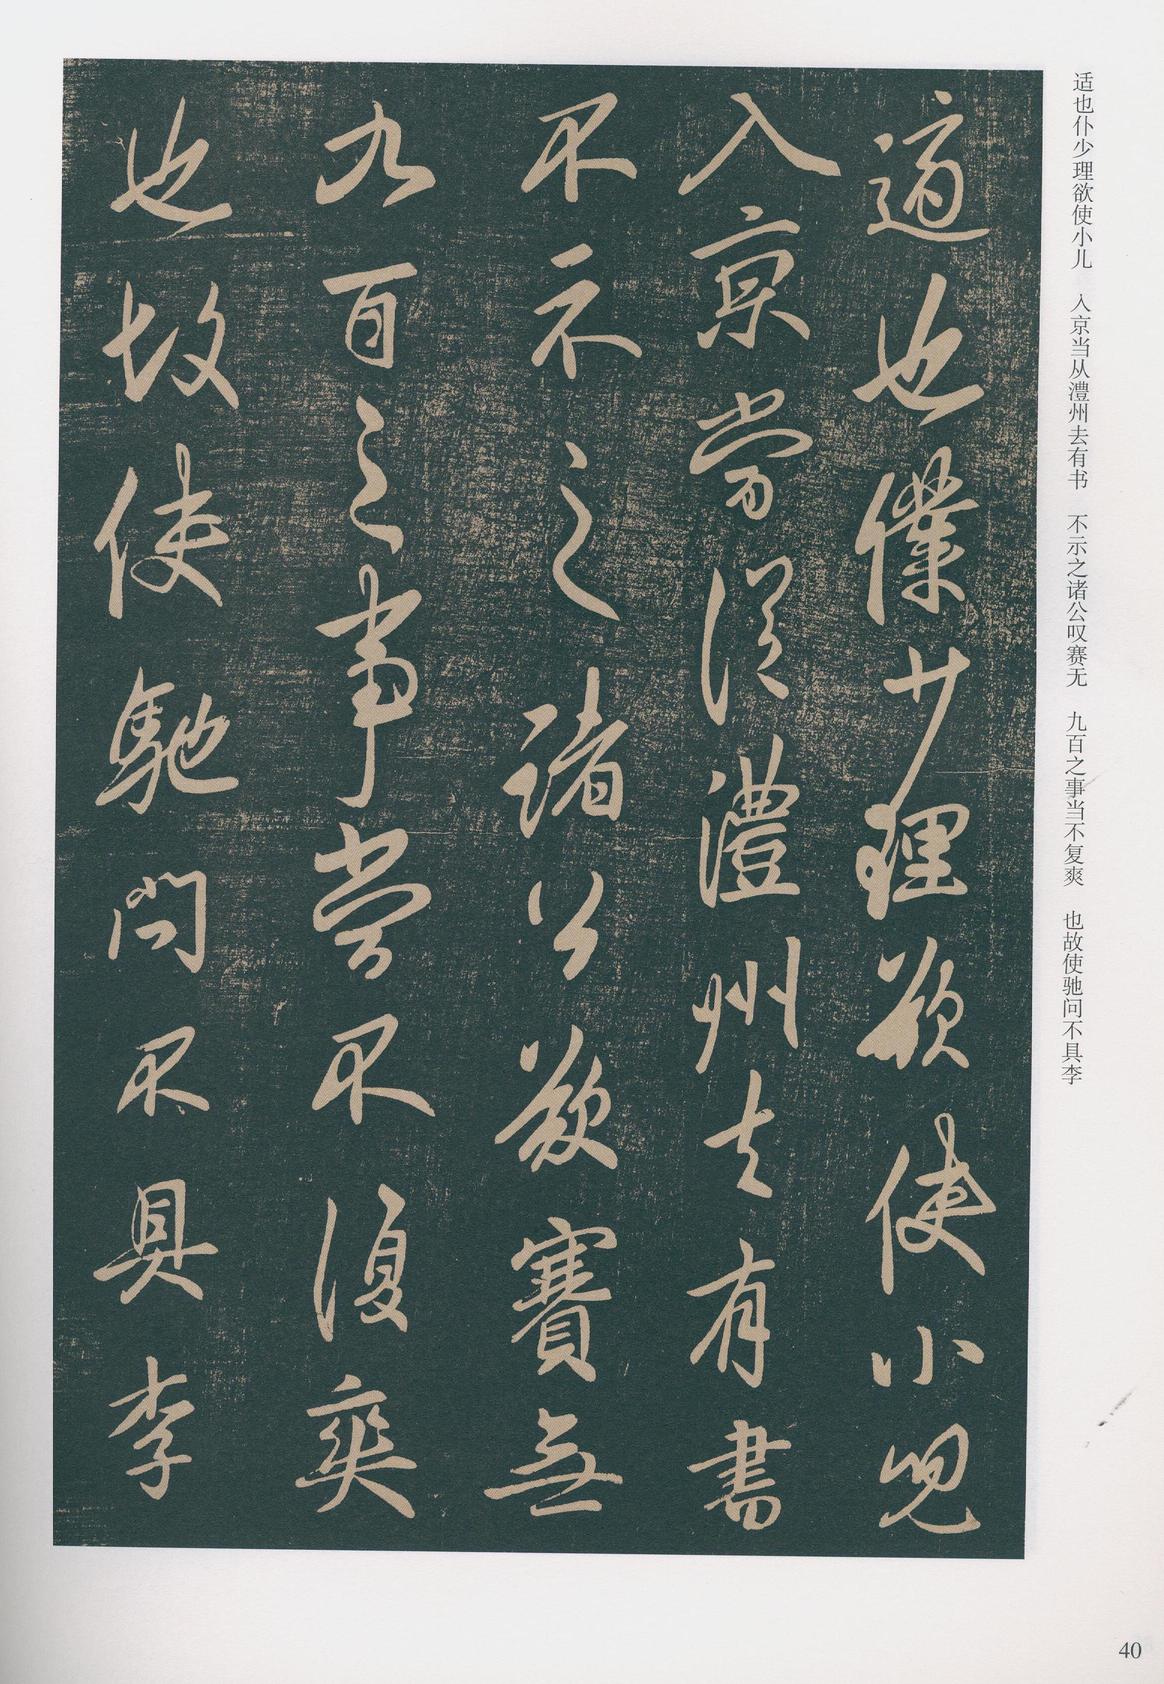 适也仆少理欲使小儿　入京当从澧州去有书　不示之诸公叹赛无　九百之事当不复爽　也故使驰问不具李
適也僕少理欲使小兒
入京當從澧州去有書
不示之諸公歎賽無
九百之事當不復爽
也故使馳問不具李
40